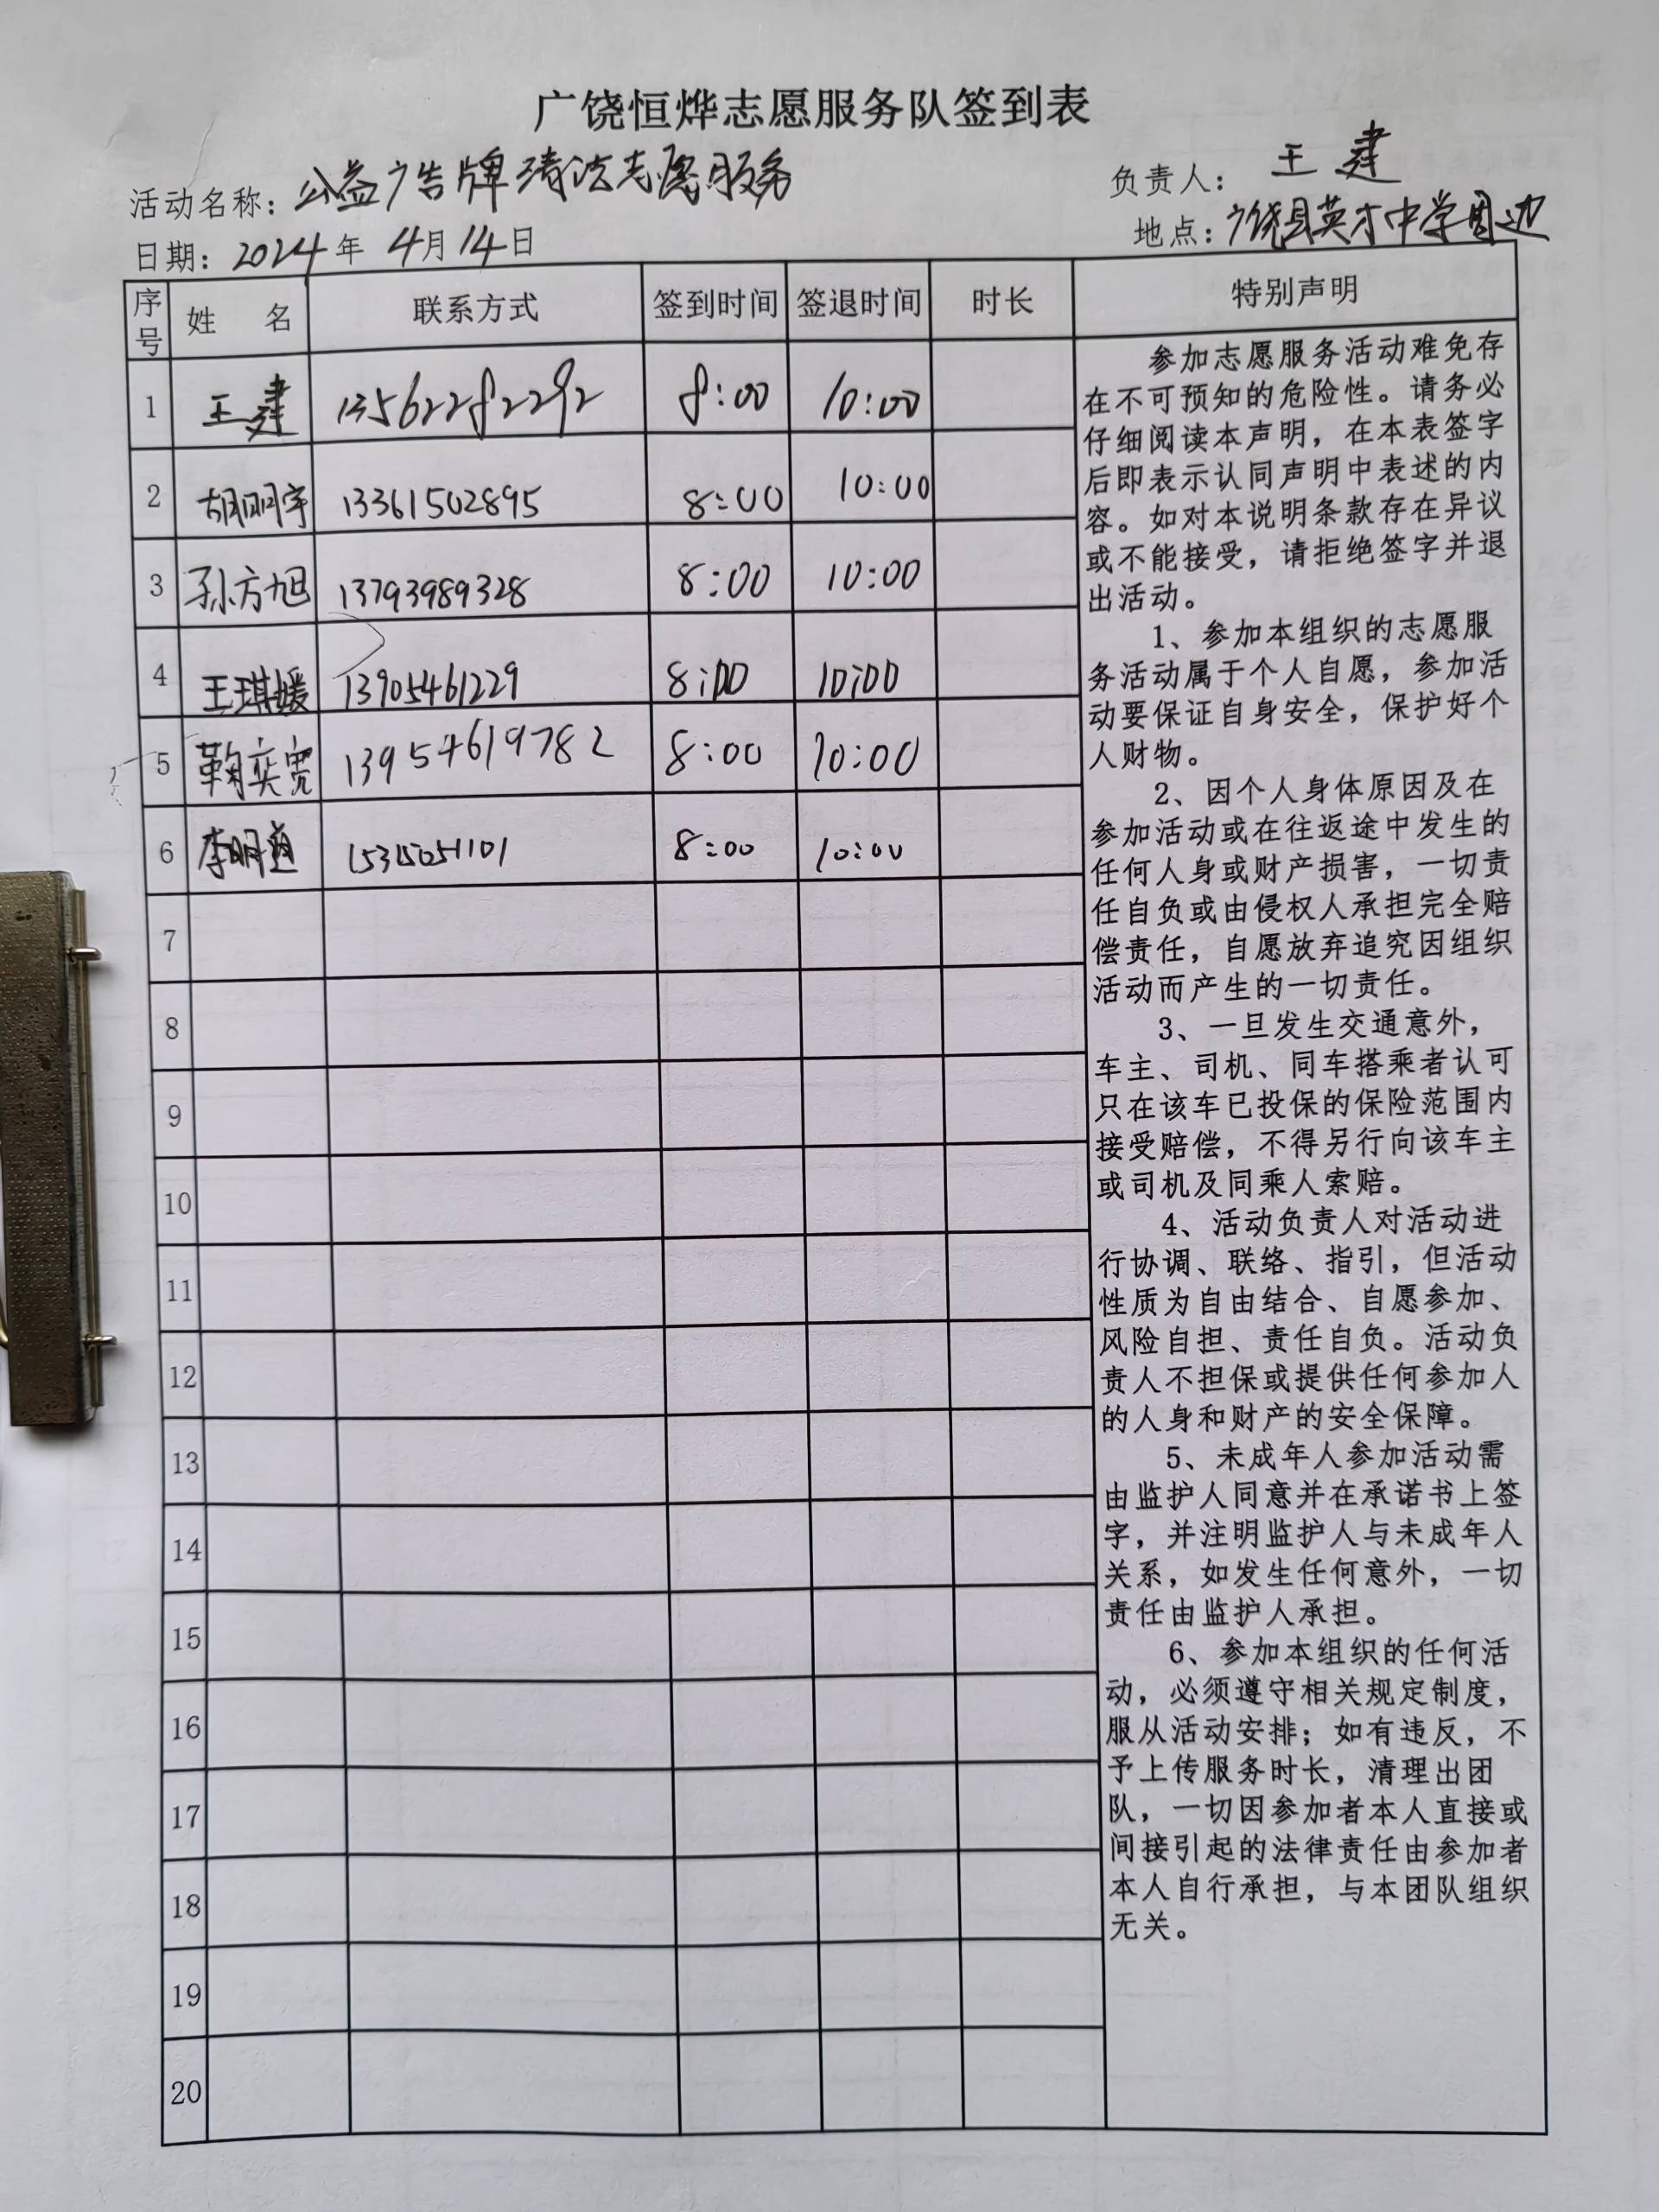 广饶恒烨志愿服务队签到表
活动名称：公益广告牌清洁志愿服务 负责人：王建
日期：2024年4月14日 地点：广饶县英才中学周边
序号 姓 名 联系方式 签到时间 签退时间 时长 特别声明
1 王建 13562282292 8:00 10:00
2 胡明宇 13361502895 8:00 10:00
3 孙方旭 13793989328 8:00 10:00
4 王琪媛 13905461229 8:00 10:00
5 鞠奕宽 13954619782 8:00 10:00
6 李明 8:00 10:00
7
8
9
10
11
12
13
14
15
16
17
18
19
20
参加志愿服务活动难免存
在不可预知的危险性。请务必
仔细阅读本声明，在本表签字
后即表示认同声明中表述的内
容。如对本说明条款存在异议
或不能接受，请拒绝签字并退
出活动。
1、参加本组织的志愿服
务活动属于个人自愿，参加活
动要保证自身安全，保护好个
人财物。
2、因个人身体原因及在
参加活动或在往返途中发生的
任何人身或财产损害，一切责
任自负或由侵权人承担完全赔
偿责任，自愿放弃追究因组织
活动而产生的一切责任。
3、一旦发生交通意外，
车主、司机、同车搭乘者认可
只在该车已投保的保险范围内
接受赔偿，不得另行向该车主
或司机及同乘人索赔。
4、活动负责人对活动进
行协调、联络、指引，但活动
性质为自由结合、自愿参加、
风险自担、责任自负。活动负
责人不担保或提供任何参加人
的人身和财产的安全保障。
5、未成年人参加活动需
由监护人同意并在承诺书上签
字，并注明监护人与未成年人
关系，如发生任何意外，一切
责任由监护人承担。
6、参加本组织的任何活
动，必须遵守相关规定制度，
服从活动安排；如有违反，不
予上传服务时长，清理出团
队，一切因参加者本人直接或
间接引起的法律责任由参加者
本人自行承担，与本团队组织
无关。